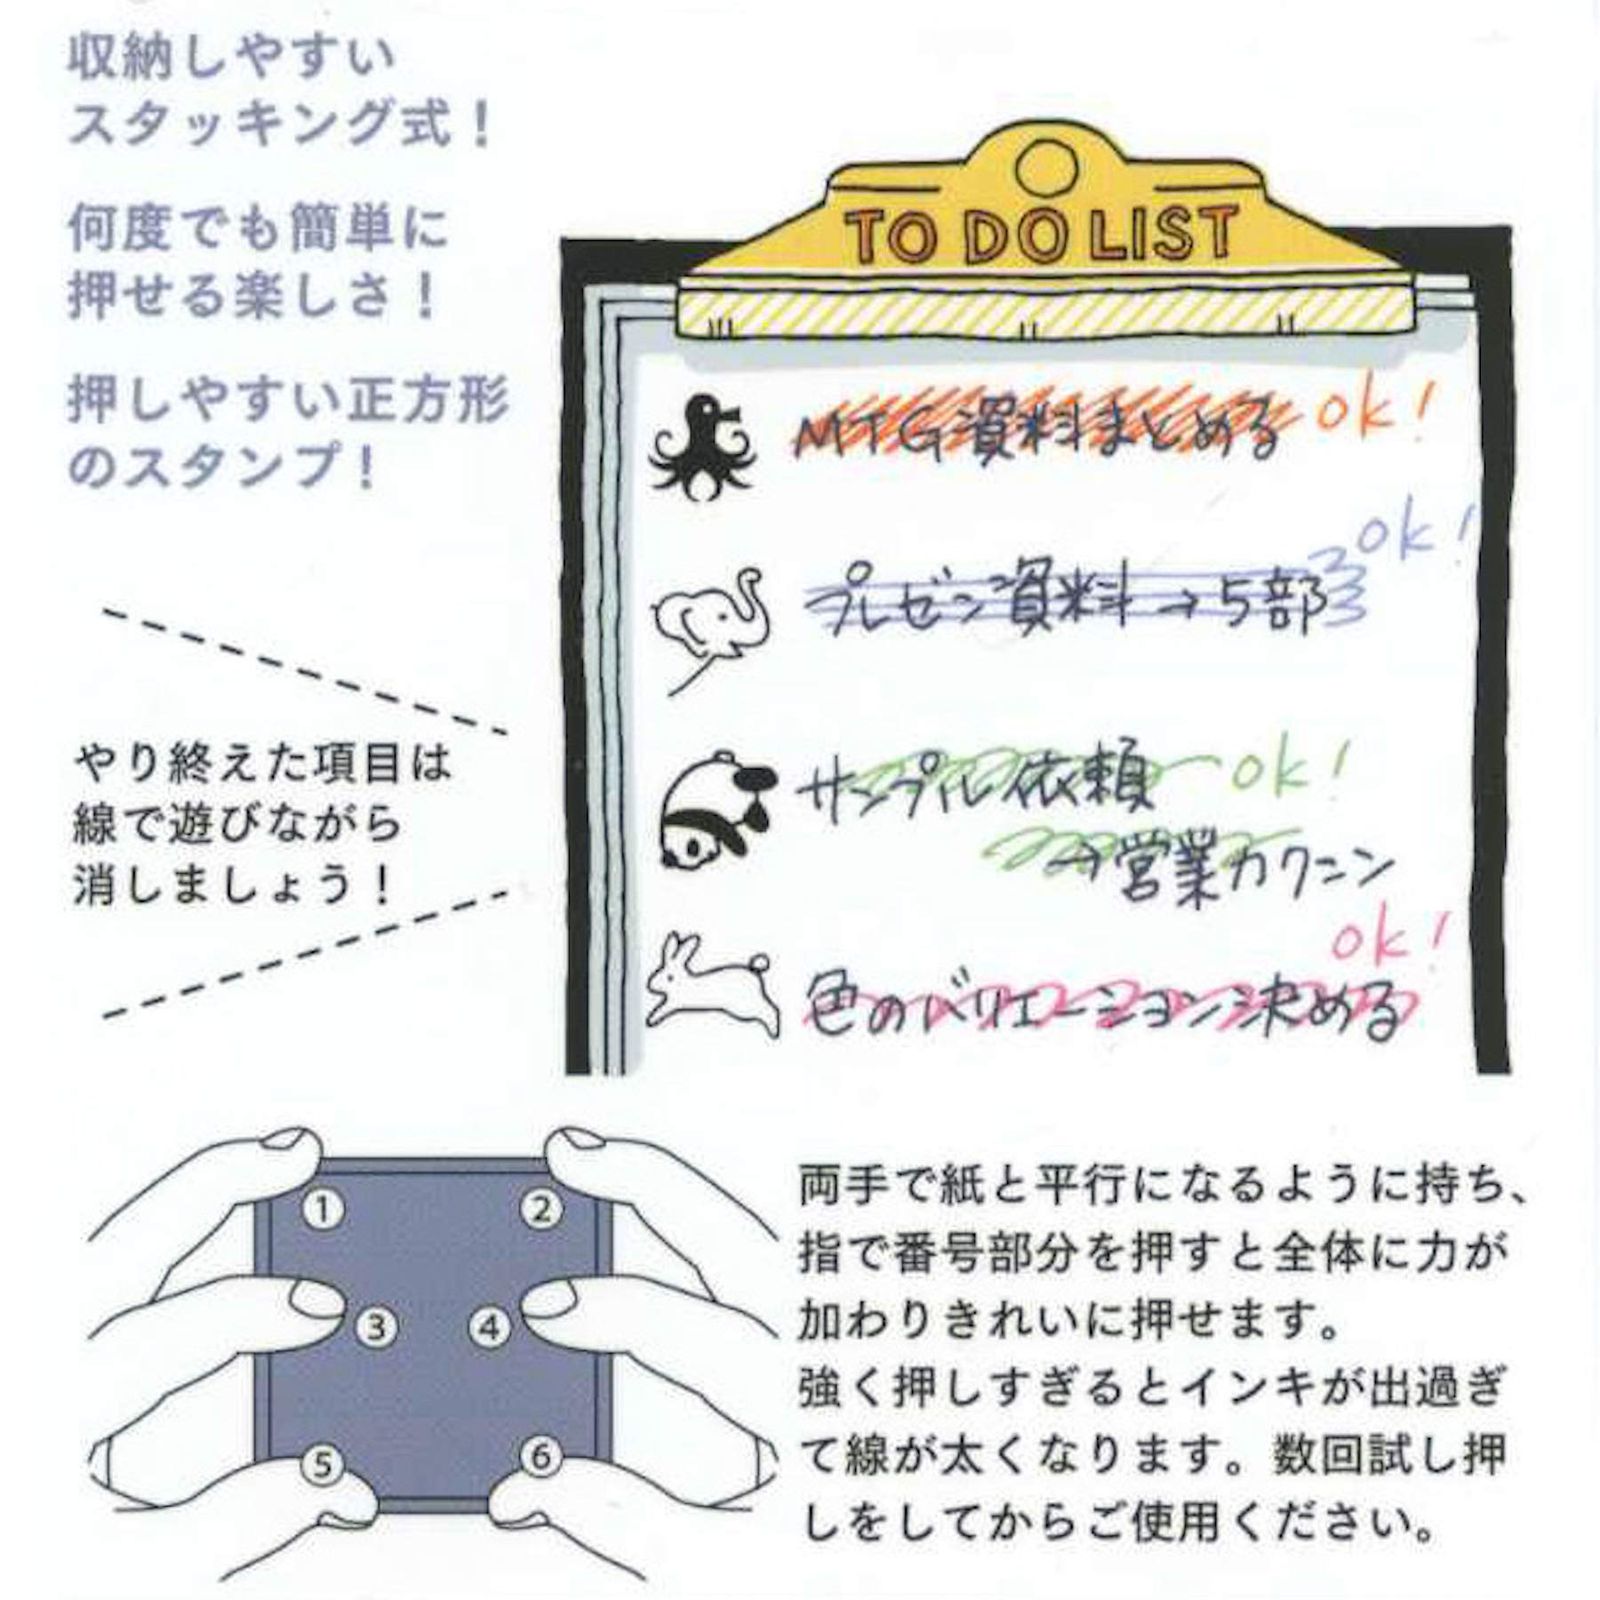 収納しやすい
スタッキング式！
何度でも簡単に
押せる楽しさ！
押しやすい正方形
のスタンプ！
TO DO LIST
MTG資料まとめる ok!
プレゼン資料→5部 ok!
サンプル依頼 ok!
→営業カクニン
ok!
色のバリエーション決める
やり終えた項目は
線で遊びながら
消しましょう！
1 2
3 4
5 6
両手で紙と平行になるように持ち、
指で番号部分を押すと全体に力が
加わりきれいに押せます。
強く押しすぎるとインキが出過ぎ
て線が太くなります。数回試し押
しをしてからご使用ください。